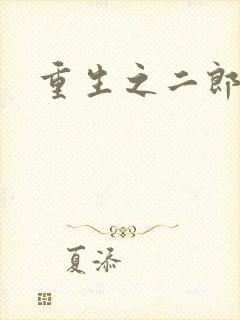 重生之二郎
夏添